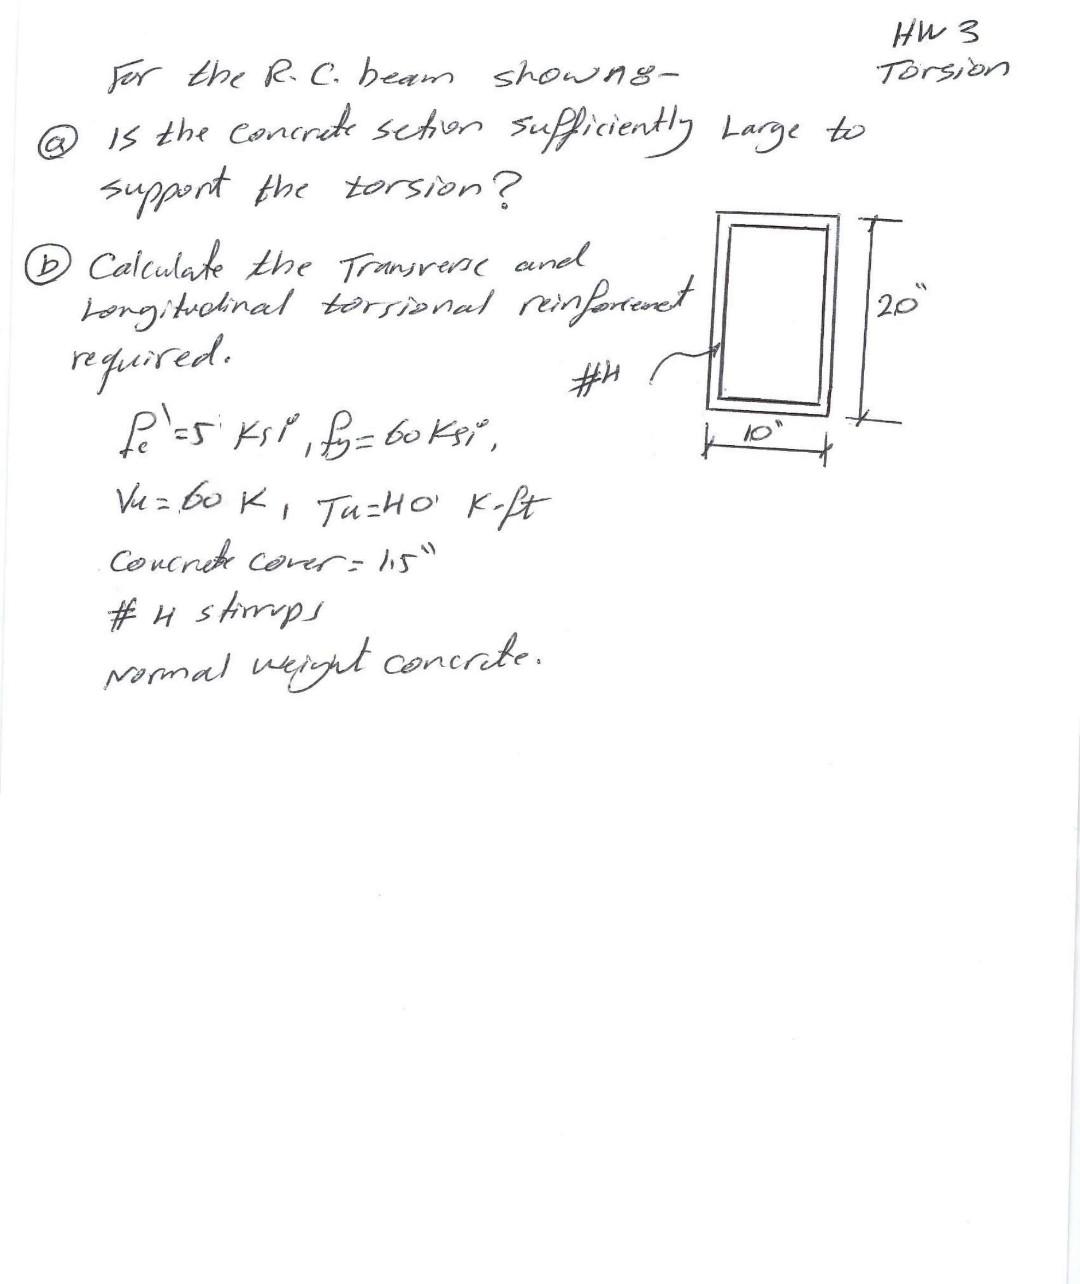 HW 3
Torsion
For the R.C. beam shown:-
ⓐ Is the concrete setion sufficiently Large to
support the torsion?
ⓑ Calculate the Transverse and
Longitudinal torsional reinforcemet
required.
#4
20"
10"
fc'=5 Ksi, fy=60 Ksi,
Vu=60 K, Tu=40 K-ft
Concrete cover=1.5"
#4 stirrups
Normal weight concrete.